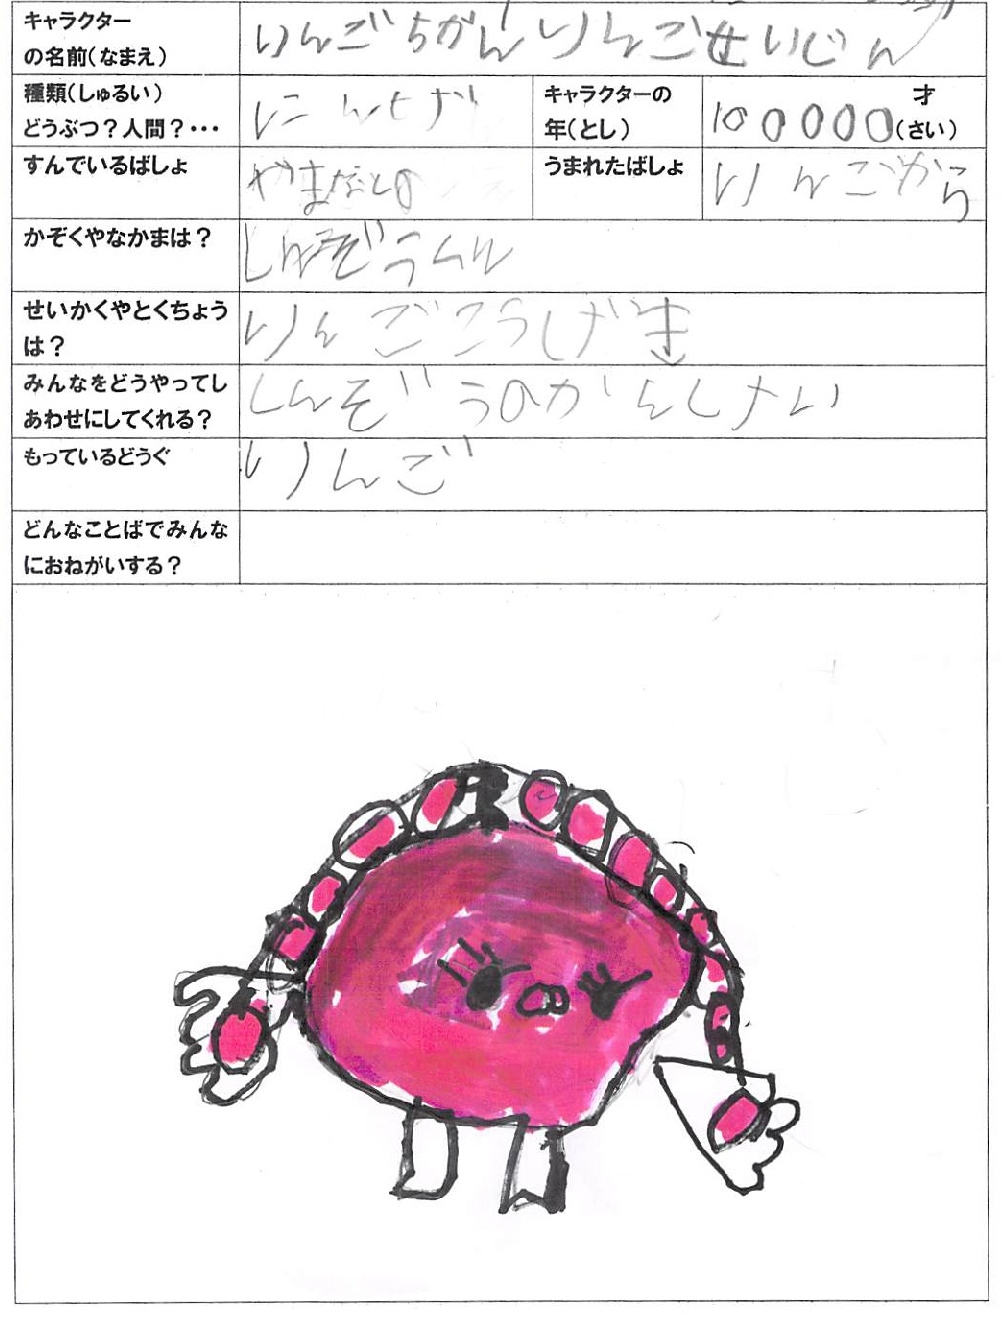 キャラクター
の名前(なまえ)
りんごちがんりんごせいじん
種類(しゅるい)
どうぶつ?人間?・・・
にんげ
キャラクターの
年(とし)
100000
才
(さい)
すんでいるばしょ
うまれたばしょ
りんごから
かぞくやなかまは?
せいかくやとくちょう
は?
りんごこうげき
みんなをどうやってし
あわせにしてくれる?
しんぞうのかんしけい
もっているどうぐ
りんご
どんなことばでみんな
におねがいする?